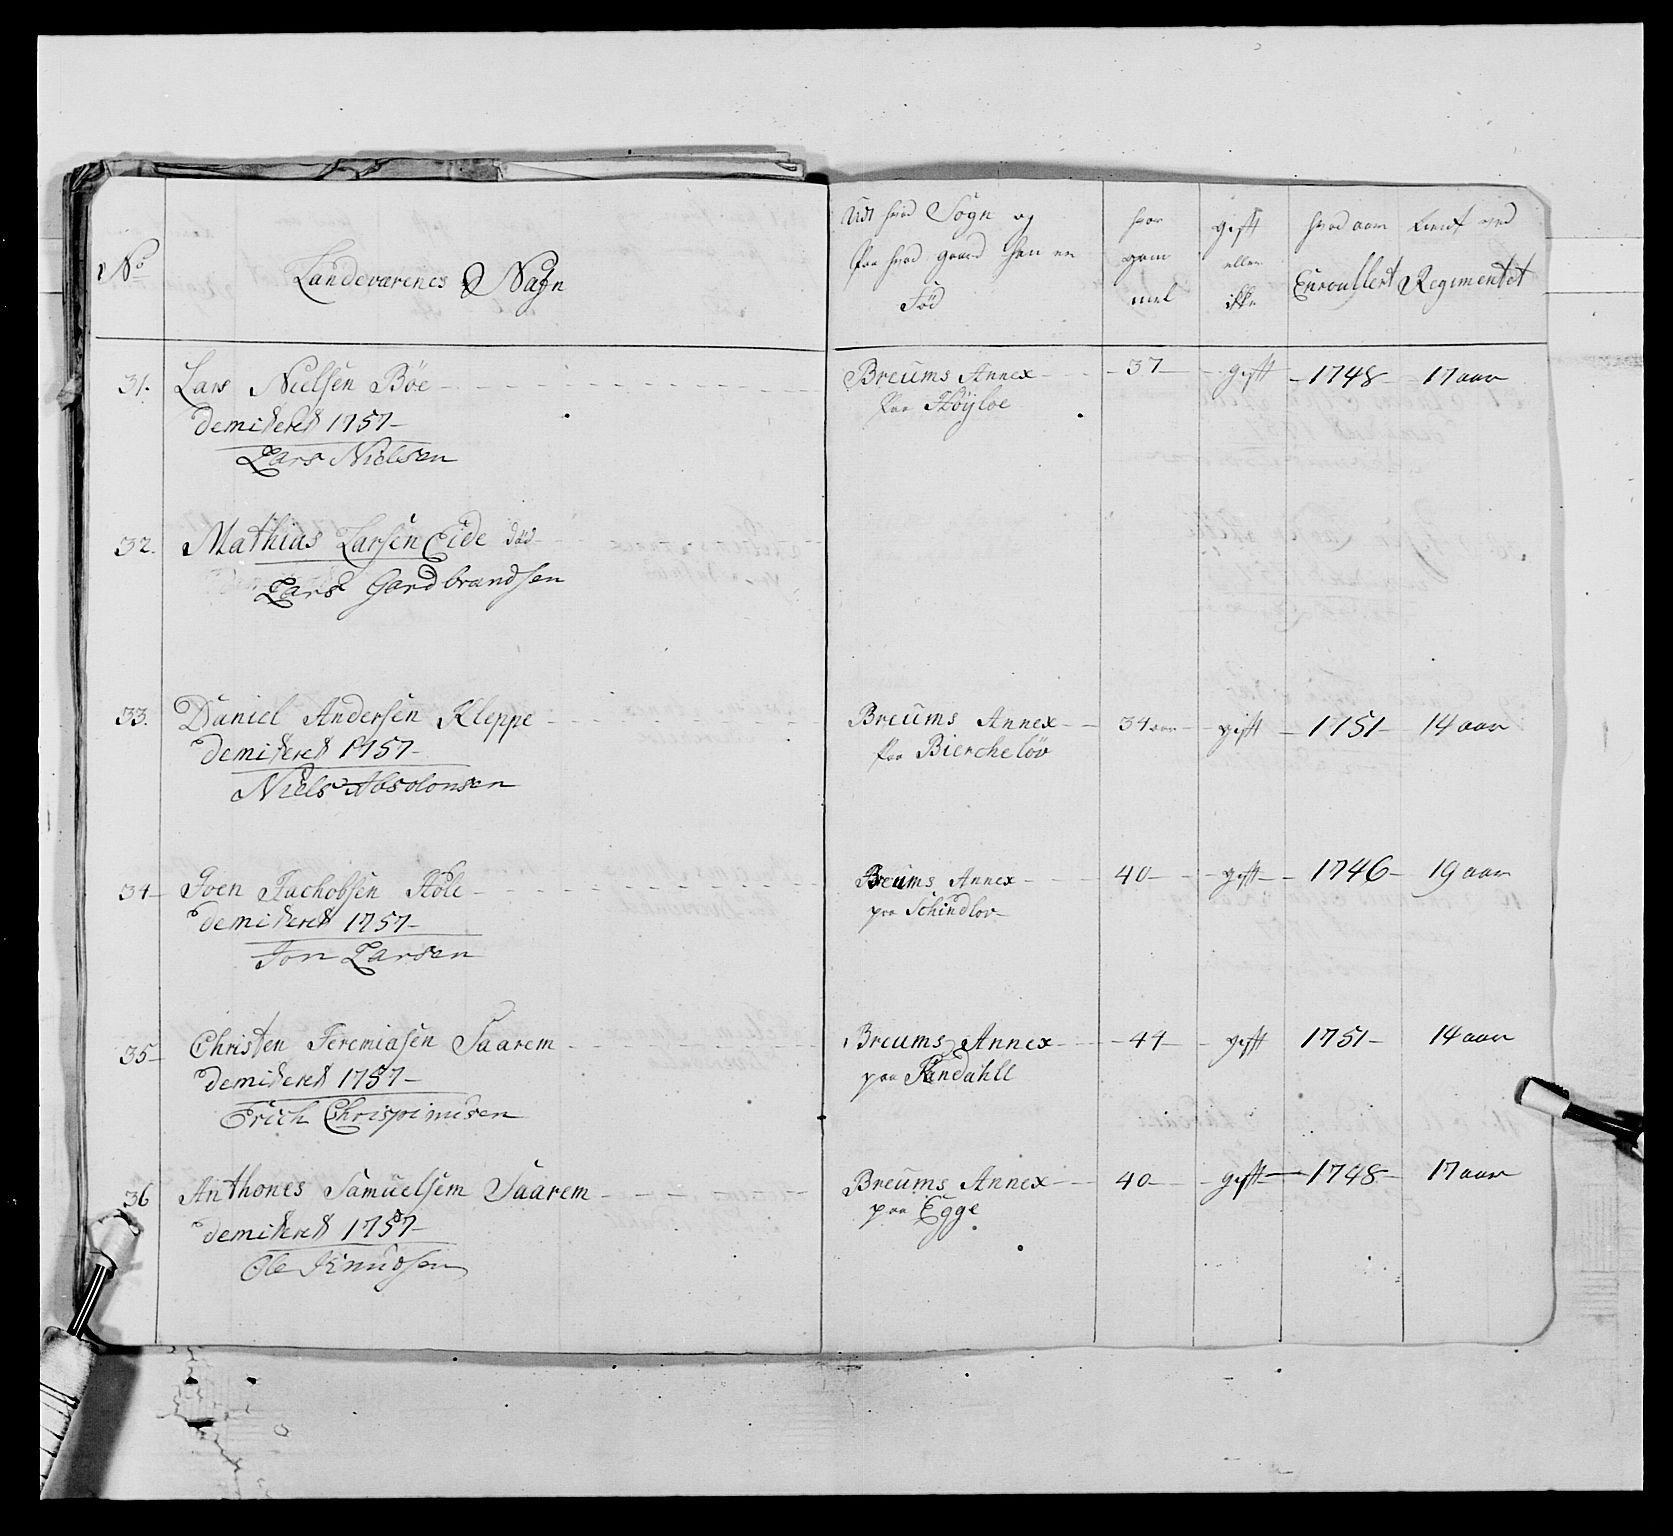 No
Landeværenes Nafn
Udi hvad Sogn og
Paa hvad gaard han er
Fød
hvor
gam
mel
gift
eller
ikke
hvad aar
Enroullert
tient ved
Regimentet
31. Lars Nielsen Böe - 37 - gift - 1748 - 17 aar
Breums Annex
Paa Höyloe
demiteret 1757 -
Lars Nielsen
32. Mathias Larsen Eide död
Lars Gardbrandsen
33. Daniel Andersen Kleppe - Breums Annex - 34 aar - gift - 1751 - 14 aar
Paa Bierchelöv
demiteret 1757 -
Niels Absolonsen
34 - Iven Jachobsen Höle - Breums Annex - 40 - gift - 1746 - 19 aar
paa Schindlov
demiteret 1757 -
Jon Larsen
35 - Christen Jeremiasen Saarem - Breums Annex - 44 - gift - 1751 - 14 aar
paa Randahll
demiteret 1757 -
Erich Chrispinusen
36 Anthones Samuelsem Saarem - Breums Annex - 40 - gift - 1748 - 17 aar
paa Egge
demiteret 1757 -
Ole Knudsen